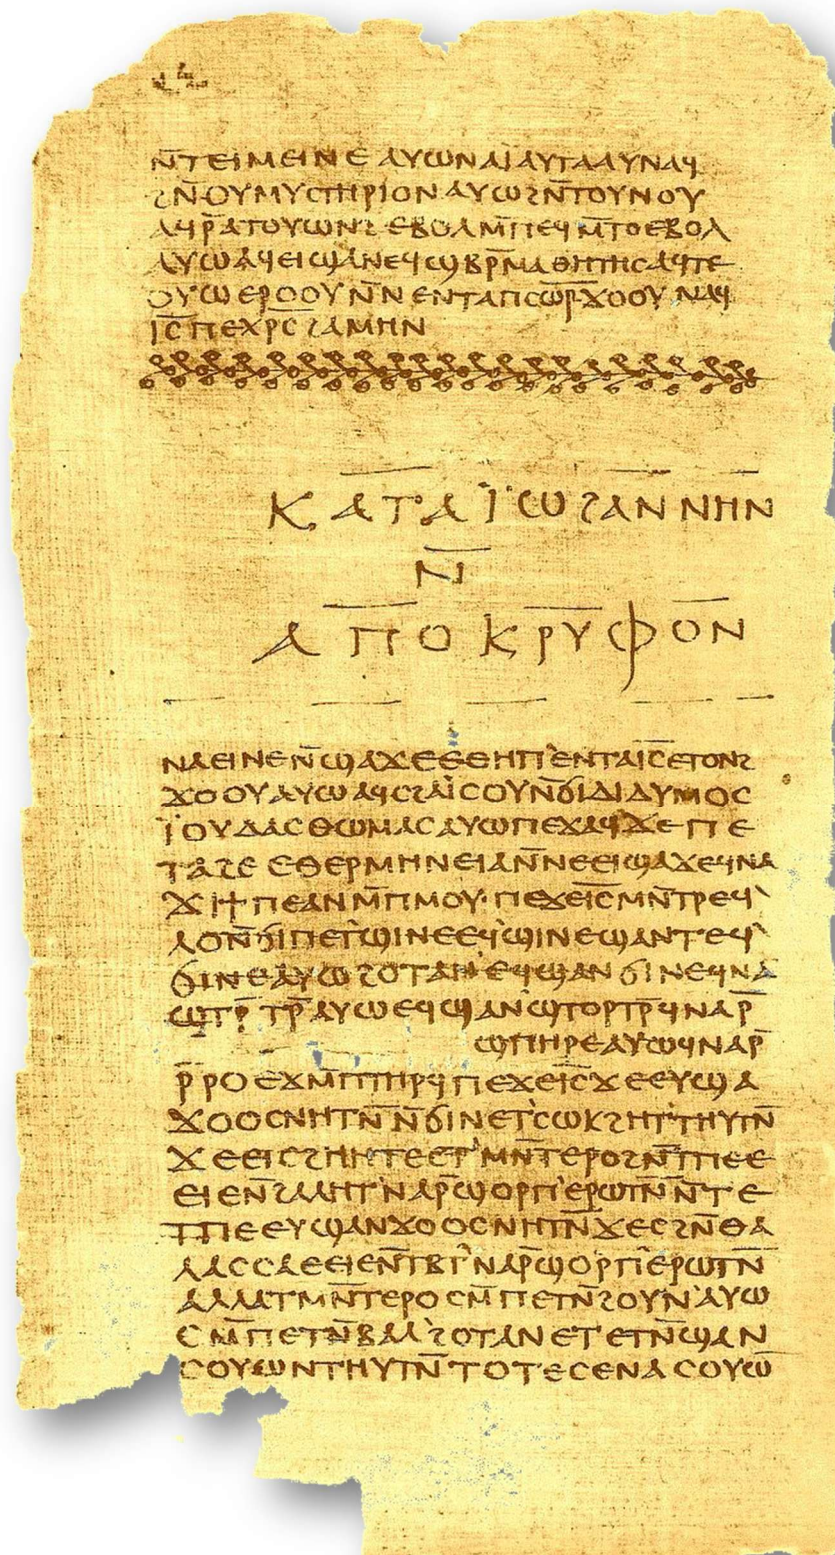 ⲛ̅ⲧⲉⲓⲙⲉⲓⲛⲉⲁⲩⲱⲛⲁⲓ̈ⲁⲩⲧⲁⲁⲩⲛⲁϥ
ϩⲛ̅ⲟⲩⲙⲩⲥⲧⲏⲣⲓⲟⲛⲁⲩⲱϩⲛ̅ⲧⲟⲩⲛⲟⲩ
ⲁϥⲣ̅ⲁⲧⲟⲩⲱⲛϩⲉⲃⲟⲗⲙ̅ⲡⲉϥⲙ̅ⲧⲟⲉⲃⲟⲗ
ⲁⲩⲱⲁϥⲉⲓϣⲁⲛⲉϥϣⲃⲣ̅ⲙⲁⲑⲏⲧⲏⲥⲁϥⲧⲉ
ⲟⲩⲱⲉⲣⲟⲟⲩⲛ̅ⲛⲉⲛⲧⲁⲡⲥⲱ̅ⲣ̅ϫⲟⲟⲩⲛⲁϥ
ⲓ̅ⲥ̅ⲡⲉⲭⲣ̅ⲥ̅ϩⲁⲙⲏⲛ
ⲕⲁⲧⲁⲓ̈ⲱϩⲁⲛⲛⲏⲛ
ⲛ̅
ⲁⲡⲟⲕⲣⲩⲫⲟⲛ
ⲛⲁⲉⲓⲛⲉⲛ̅ϣⲁϫⲉⲉⲑⲏⲡ'ⲉⲛⲧⲁⲓ̅ⲥ̅ⲉⲧⲟⲛϩ
ϫⲟⲟⲩⲁⲩⲱⲁϥⲥϩⲁⲓ̈ⲥⲟⲩⲛ̅ϭⲓⲇⲓⲇⲩⲙⲟⲥ
ⲓ̈ⲟⲩⲇⲁⲥⲑⲱⲙⲁⲥⲁⲩⲱⲡⲉϫⲁϥϫⲉⲡⲉ
ⲧⲁϩⲉⲉⲑⲉⲣⲙⲏⲛⲉⲓⲁⲛ̅ⲛⲉⲉⲓϣⲁϫⲉϥⲛⲁ
ϫⲓϯⲡⲉⲁⲛⲙ̅ⲡⲙⲟⲩ·ⲡⲉϫⲉⲓ̅ⲥ̅ⲙⲛ̅ⲧⲣⲉϥ'
ⲗⲟⲛ̅ϭⲓⲡⲉⲧ'ϣⲓⲛⲉⲉϥ'ϣⲓⲛⲉϣⲁⲛⲧⲉϥ'
ϭⲓⲛⲉⲁⲩⲱϩⲟⲧⲁⲛ'ⲉϥϣⲁⲛϭⲓⲛⲉϥⲛⲁ
ϣⲧⲣ̅ⲧⲣ̅ⲁⲩⲱⲉϥϣⲁⲛ'ϣⲧⲟⲣⲧⲣ̅ϥⲛⲁⲣ̅
ϣⲡⲏⲣⲉⲁⲩⲱϥⲛⲁⲣ̅
ⲣ̅ⲣⲟⲉϫⲙ̅ⲡⲧⲏⲣϥⲡⲉϫⲉⲓ̅ⲥ̅ϫⲉⲉⲩϣⲁ
ϫⲟⲟⲥⲛⲏⲧⲛ̅ⲛ̅ϭⲓⲛⲉⲧ'ⲥⲱⲕϩⲏⲧ'ⲧⲏⲩⲧⲛ̅
ϫⲉⲉⲓⲥϩⲏⲏⲧⲉⲉⲧ'ⲙⲛ̅ⲧⲉⲣⲟϩⲛ̅ⲧⲡⲉⲉ
ⲉⲓⲉⲛ̅ϩⲁⲗⲏⲧ'ⲛⲁⲣ̅ϣⲟⲣⲡ'ⲉⲣⲱⲧⲛ̅ⲛ̅ⲧⲉ
ⲧⲡⲉⲉⲩϣⲁⲛϫⲟⲟⲥⲛⲏⲧⲛ̅ϫⲉⲥϩⲛ̅ⲑⲁ
ⲗⲁⲥⲥⲁⲉⲉⲓⲉⲛ̅ⲧⲃⲧ'ⲛⲁⲣ̅ϣⲟⲣⲡ'ⲉⲣⲱⲧⲛ̅
ⲁⲗⲗⲁⲧⲙⲛ̅ⲧⲉⲣⲟⲥⲙ̅ⲡⲉⲧⲛ̅ϩⲟⲩⲛ'ⲁⲩⲱ
ⲥⲙ̅ⲡⲉⲧⲛ̅ⲃⲁⲗ'ϩⲟⲧⲁⲛⲉⲧⲉⲧⲛ̅ϣⲁⲛ
ⲥⲟⲩⲱⲛⲧⲏⲩⲧⲛ̅ⲧⲟⲧⲉⲥⲉⲛⲁⲥⲟⲩⲱ̅